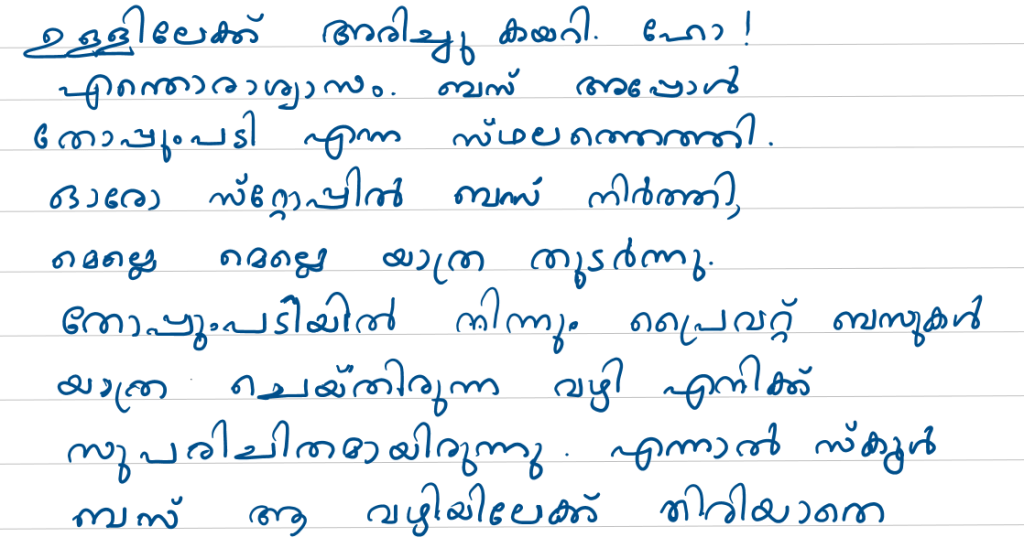 ഉള്ളിലേക്ക് അരിച്ചു കയറി. ഹോ!
എന്തൊരാശ്വാസം. ബസ് അപ്പോൾ
തോപ്പുംപടി എന്ന സ്ഥലത്തെത്തി.
ഓരോ സ്റ്റോപ്പിൽ ബസ് നിർത്തി,
മെല്ലെ മെല്ലെ യാത്ര തുടർന്നു.
തോപ്പുംപടിയിൽ നിന്നും പ്രൈവറ്റ് ബസുകൾ
യാത്ര ചെയ്തിരുന്ന വഴി എനിക്ക്
സുപരിചിതമായിരുന്നു. എന്നാൽ സ്കൂൾ
ബസ് ആ വഴിയിലേക്ക് തിരിയാതെ